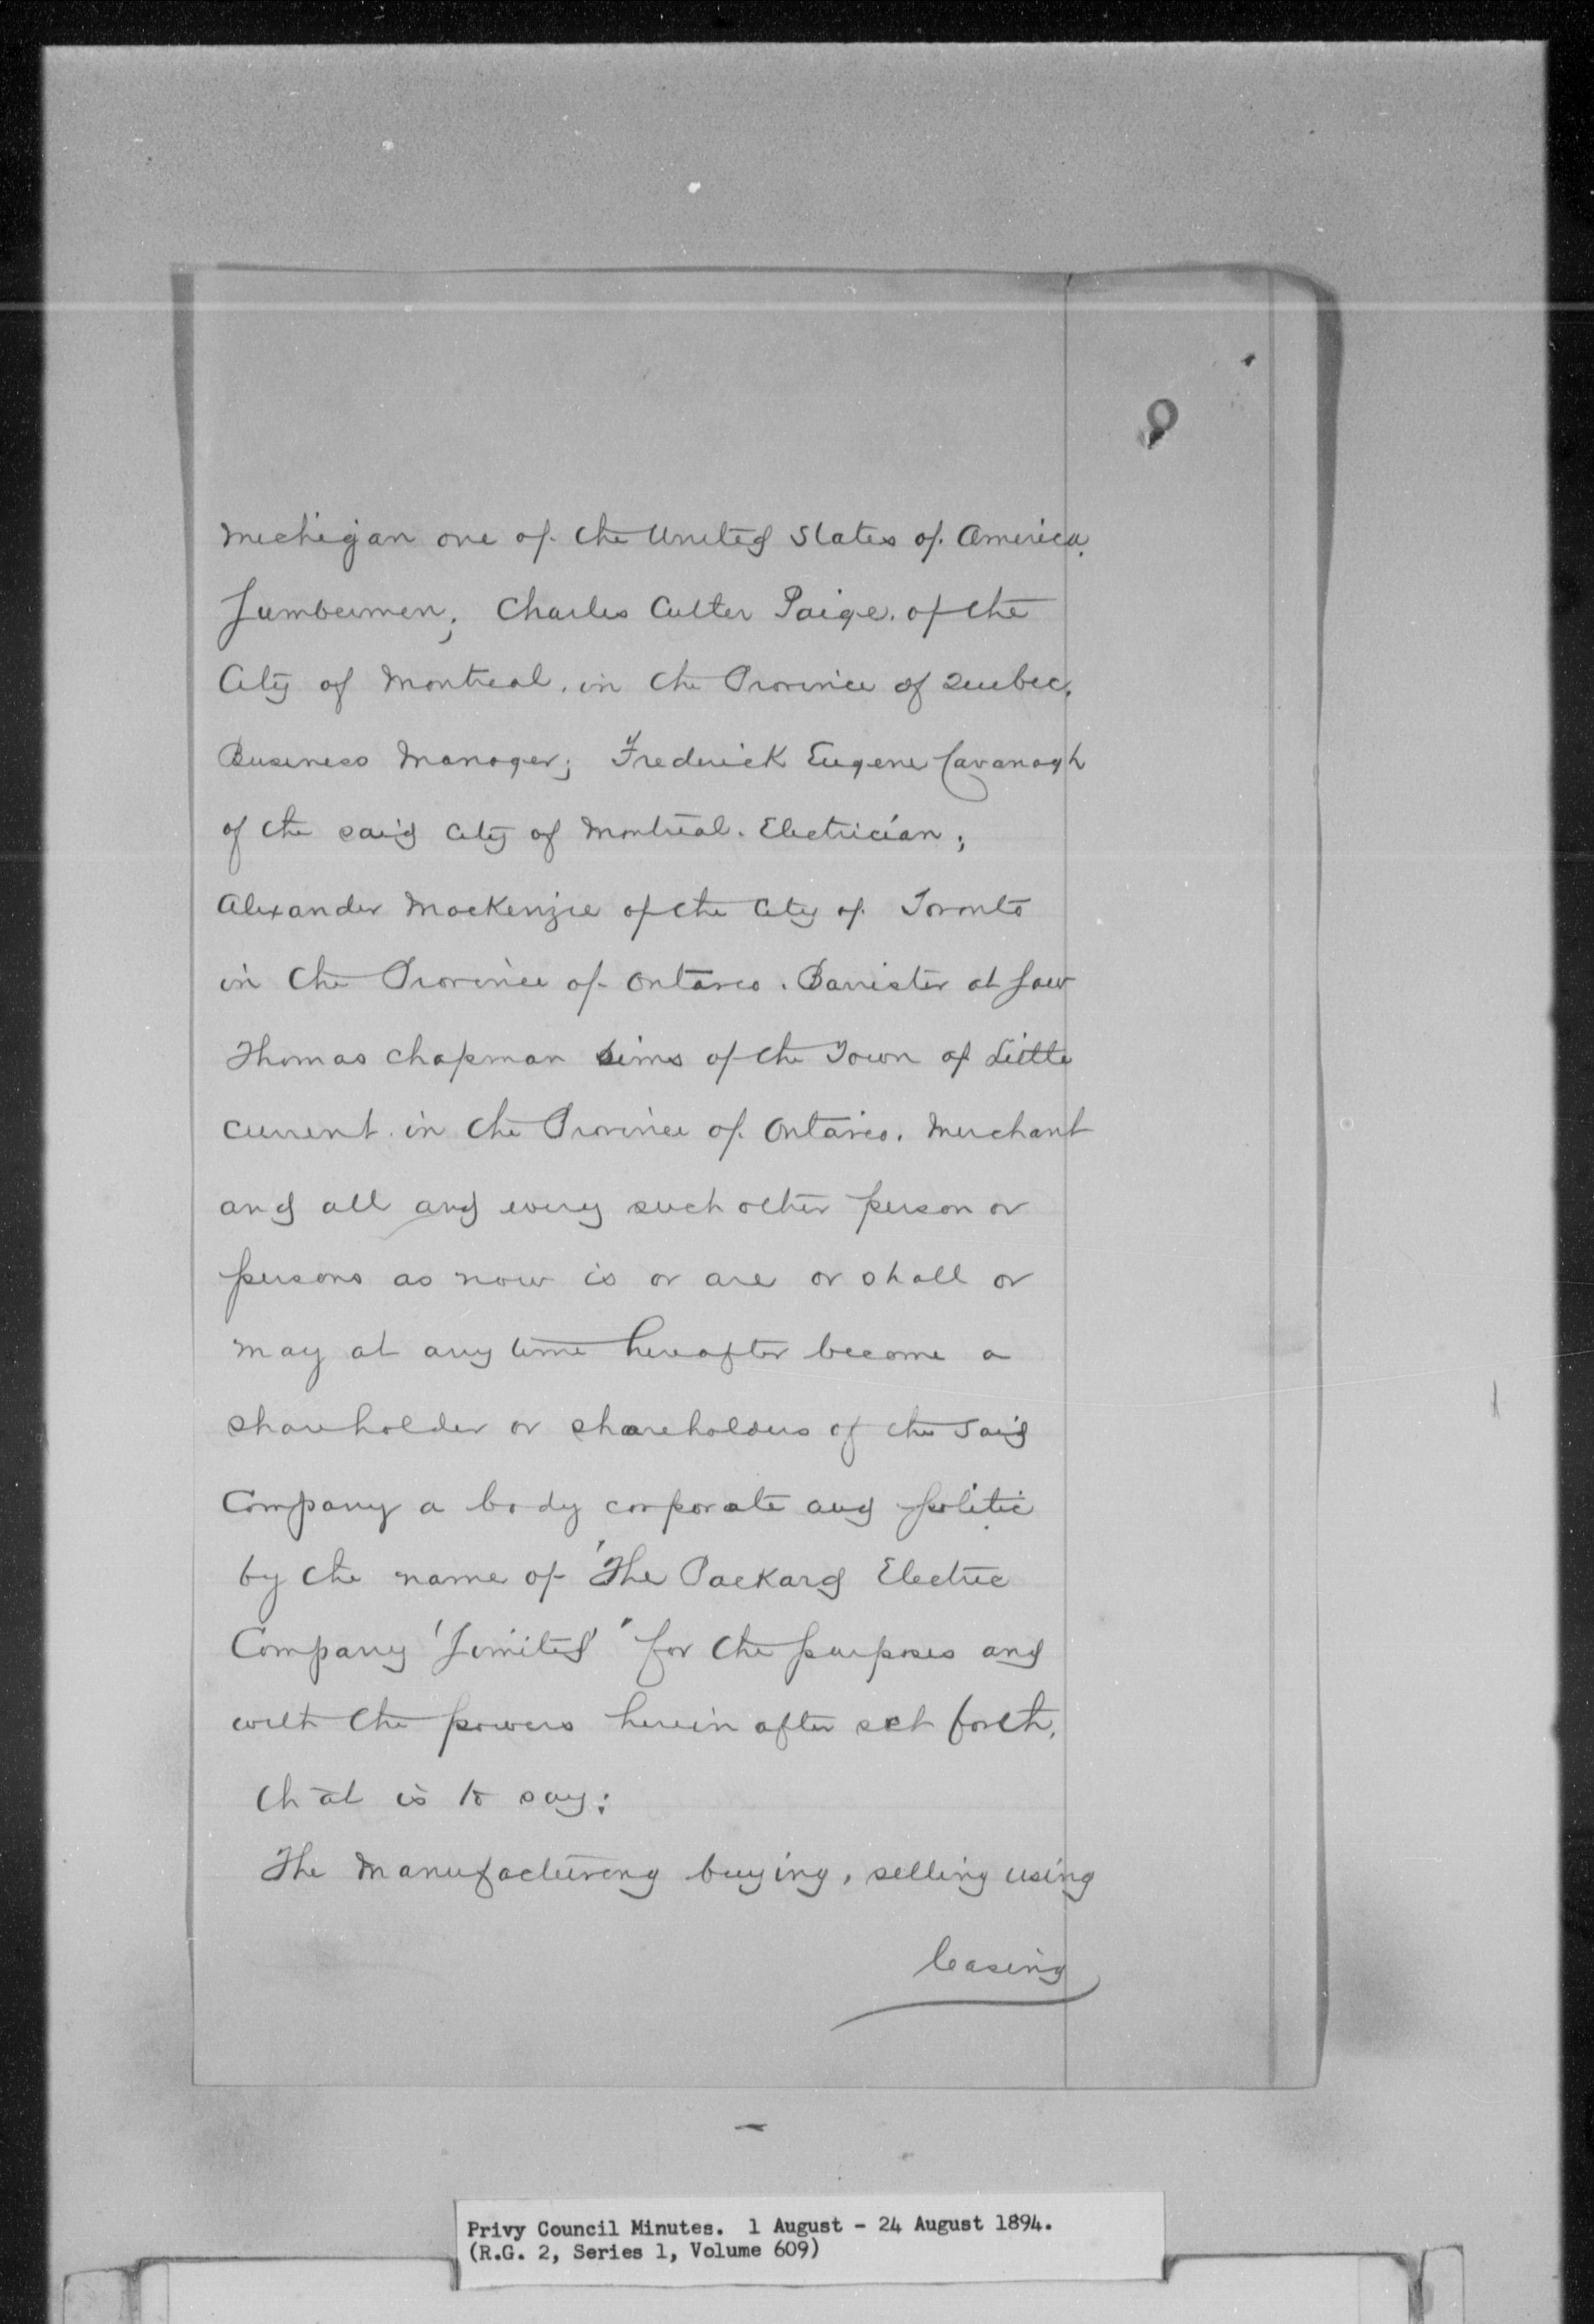 Michigan one of the United States of America.
Lumbermen; Charles Cutter Paige. of the
City of Montreal. in the Province of Quebec.
Business Manager; Frederick Eugene Cavanagh
of the said City of Montreal. Electrician;
Alexander MacKenzie of the City of Toronto
in the Province of Ontario. Barrister at Law
Thomas Chapman Sims of the Town of Little
Current in the Province of Ontario. Merchant
and all and every such other person or
persons as now is or are or shall or
may at any time hereafter become a
shareholder or shareholders of the said
Company a body corporate and politic
by the name of "The Packard Electric
Company 'Limited'" for the purposes and
with the powers herein after set forth.
that is to say:
The Manufacturing buying, selling using
leasing
Privy Council Minutes. 1 August - 24 August 1894.
(R.G. 2, Series 1, Volume 609)